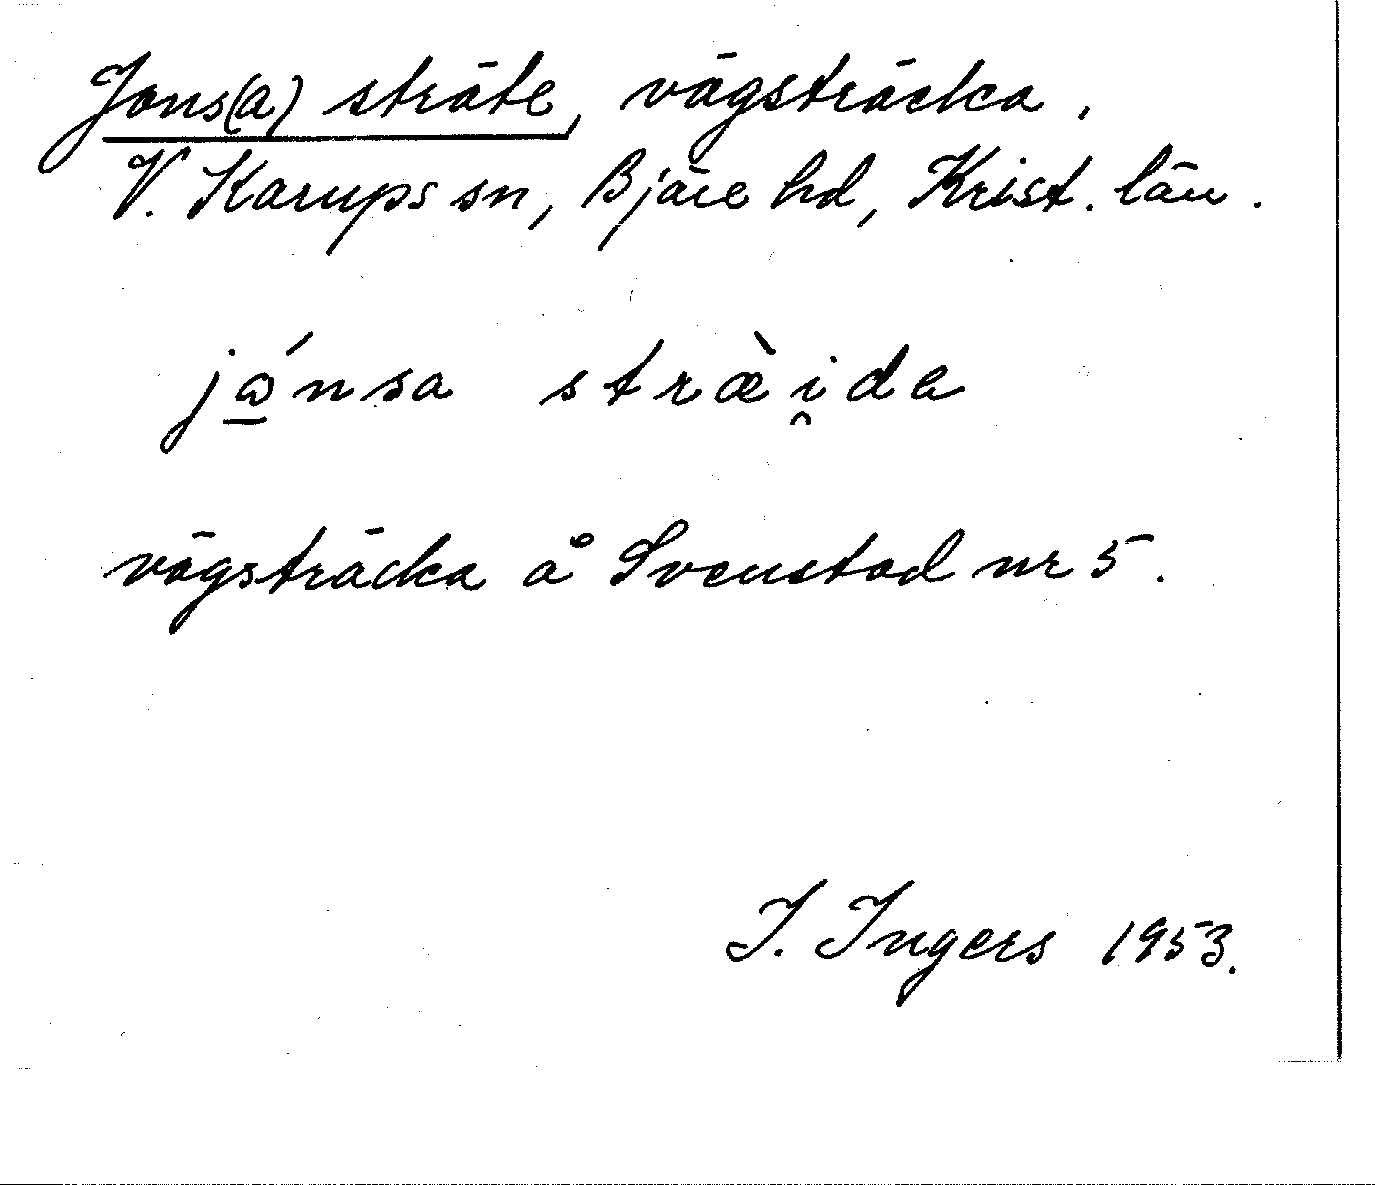 Jons(a) sträte, vägsträcka.
V. Karups sn, Bjäre hd, Krist. län.
jǿnsa stræ̀i̯de
vägsträcka å Svenstad nr 5.
I. Ingers 1953.